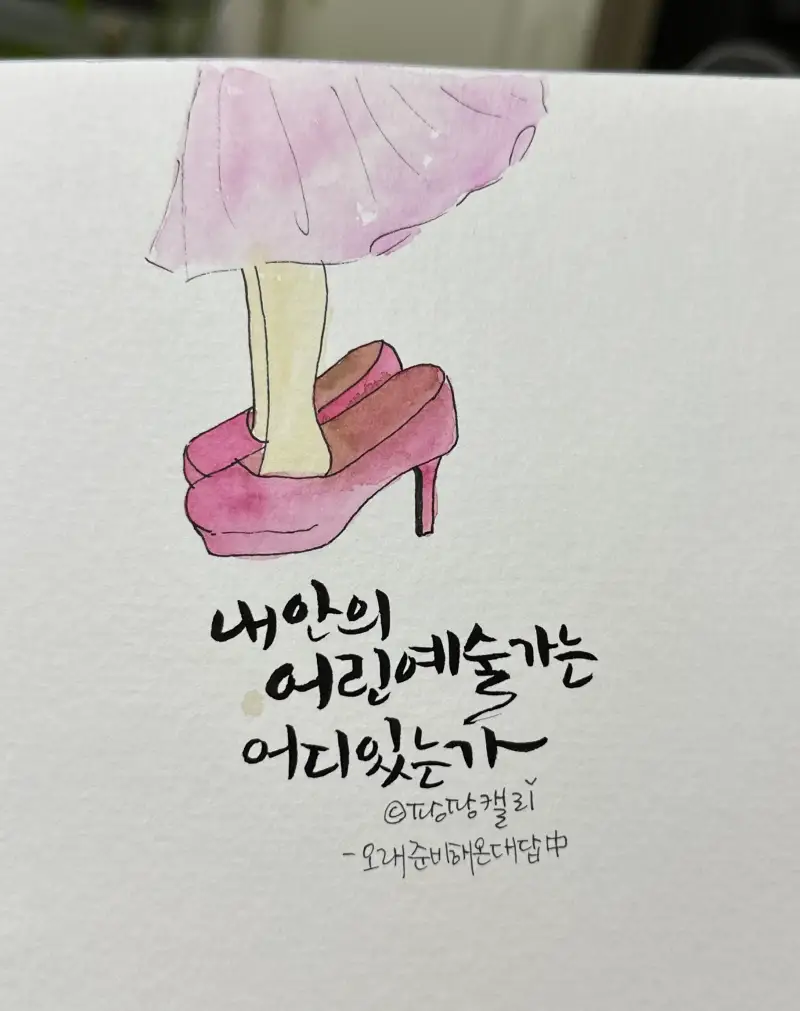 내안의
어린예술가는
어디있는가
©땅땅캘리
-오래준비해온대답中